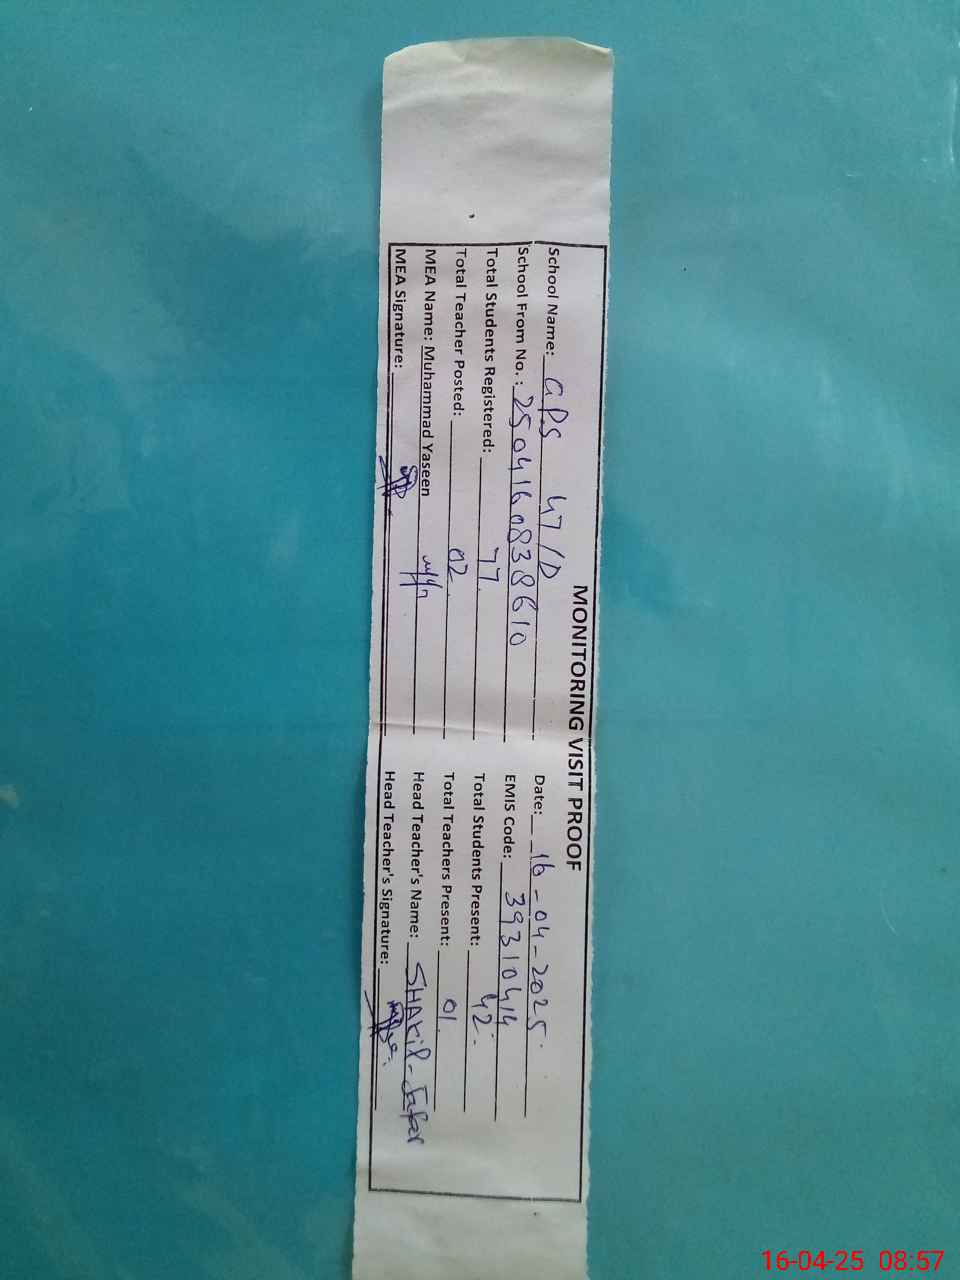 MONITORING VISIT PROOF
School Name: GPS 47/D Date: 16-04-2025
School From No.: 2504160838610 EMIS Code: 39310414
Total Students Registered: 77 Total Students Present: 42
Total Teacher Posted: 02 Total Teachers Present: 01
MEA Name: Muhammad Yaseen Head Teacher's Name: SHAKil-Jafar
MEA Signature: Head Teacher's Signature:
16-04-25 08:57